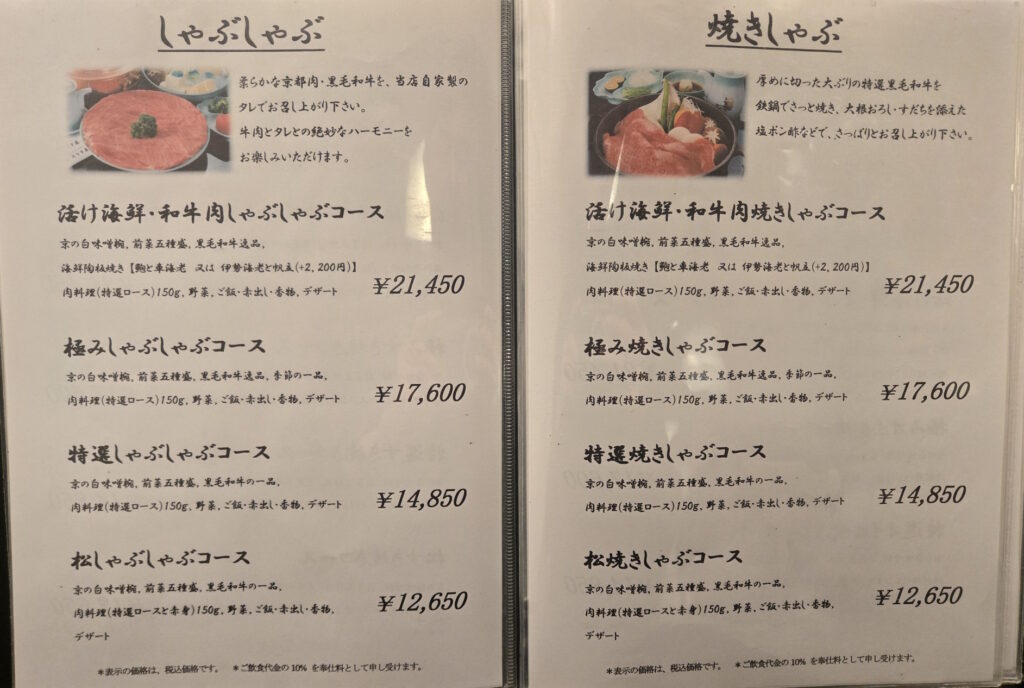 しゃぶしゃぶ
柔らかな京都肉・黒毛和牛を、当店自家製の
タレでお召し上がり下さい。
牛肉とタレとの絶妙なハーモニーを
お楽しみいただけます。
活け海鮮・和牛肉しゃぶしゃぶコース
京の白味噌椀, 前菜五種盛, 黒毛和牛逸品,
海鮮陶板焼き【鮑と車海老 又は 伊勢海老と帆立(+2,200円)】
肉料理(特選ロース)150g, 野菜, ご飯・赤出し・香物, デザート
¥21,450
極みしゃぶしゃぶコース
京の白味噌椀, 前菜五種盛, 黒毛和牛逸品, 季節の一品,
肉料理(特選ロース)150g, 野菜, ご飯・赤出し・香物, デザート
¥17,600
特選しゃぶしゃぶコース
京の白味噌椀, 前菜五種盛, 黒毛和牛の一品,
肉料理(特選ロース)150g, 野菜, ご飯・赤出し・香物, デザート
¥14,850
松しゃぶしゃぶコース
京の白味噌椀, 前菜五種盛, 黒毛和牛の一品,
肉料理(特選ロースと赤身)150g, 野菜, ご飯・赤出し・香物,
デザート
¥12,650
*表示の価格は、税込価格です。 *ご飲食代金の10% を奉仕料として申し受けます。
焼きしゃぶ
厚めに切った大ぶりの特選黒毛和牛を
鉄鍋でさっと焼き、大根おろし・すだちを添えた
塩ポン酢などで、さっぱりとお召し上がり下さい。
活け海鮮・和牛肉焼きしゃぶコース
京の白味噌椀, 前菜五種盛, 黒毛和牛逸品,
海鮮陶板焼き【鮑と車海老 又は 伊勢海老と帆立(+2,200円)】
肉料理(特選ロース)150g, 野菜, ご飯・赤出し・香物, デザート
¥21,450
極み焼きしゃぶコース
京の白味噌椀, 前菜五種盛, 黒毛和牛逸品, 季節の一品,
肉料理(特選ロース)150g, 野菜, ご飯・赤出し・香物, デザート
¥17,600
特選焼きしゃぶコース
京の白味噌椀, 前菜五種盛, 黒毛和牛の一品,
肉料理(特選ロース)150g, 野菜, ご飯・赤出し・香物, デザート
¥14,850
松焼きしゃぶコース
京の白味噌椀, 前菜五種盛, 黒毛和牛の一品,
肉料理(特選ロースと赤身)150g, 野菜, ご飯・赤出し・香物,
デザート
¥12,650
*表示の価格は、税込価格です。 *ご飲食代金の10% を奉仕料として申し受けます。